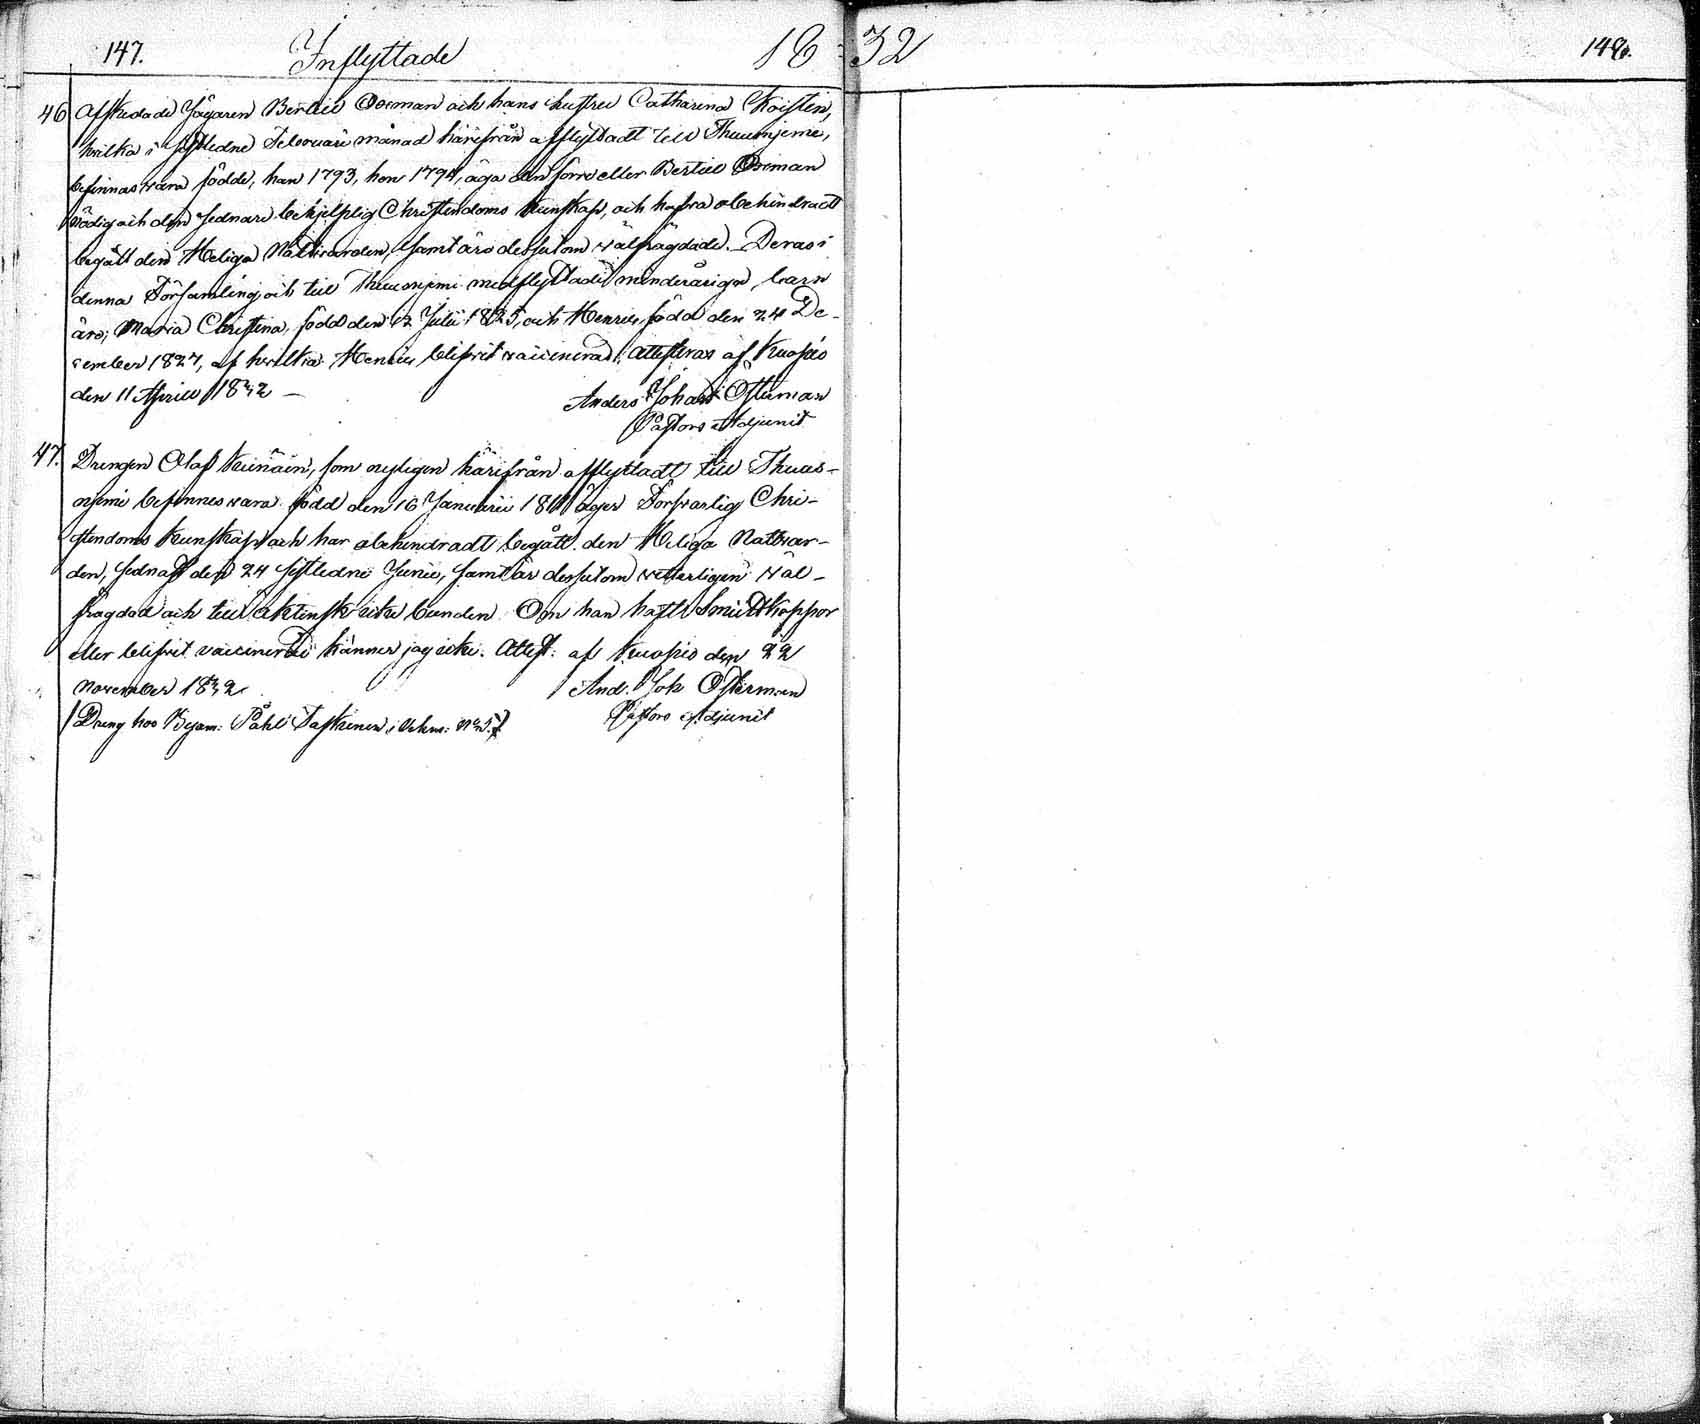 147. Inflyttade 18
32 148.
46 Afskedade Jägaren Bertill Osman och hans hustru Catharina Koistin,
hvilka i sistledne Februarii månad härifrån afflyttadt till Thuusnjemi,
befinnas vara födde, han 1793, hon 1794, äga den förre eller Bertill Osman
nödig och den sednare behjelplig Christendoms kunskap, och hafva obehindradt
begått den Heliga Nattvarden, samt äro dessutom välfrägdade. Deras i
denna Församling och till Thuusnjemi medflyttade minderåriga barn
äro; Maria Christina, född den 12 Julii 1825, och Henric, född den 24 De-
cember 1827, af hvilka Henric blifvit vaccinerad; attesteras af Kuopio
den 11 Aprill 1832 —
Anders Johan Österman
Pastors Adjunct
47. Drengen Olof Kinnäin, som nyligen härifrån afflyttadt till Thuus-
njemi befinnes vara född den 16 Januarii 1811 äger Försvarlig Chri-
stendoms kunskap och har obehindradt begått den Heliga Nattvar-
den, sednast den 24 sistledne Junii, samt är dessutom vetterligen väl-
frägdad och till äktensk icke bunden. Om han haft Smittkoppor
eller blifvit vaccinerad känner jag icke. Attest: af Kuopio den 22
November 1832.
And. Joh Österman
Pastors Adjunct
(Dreng hos Bysam: Påhl Taskinen i Vehm: N:o 5.)